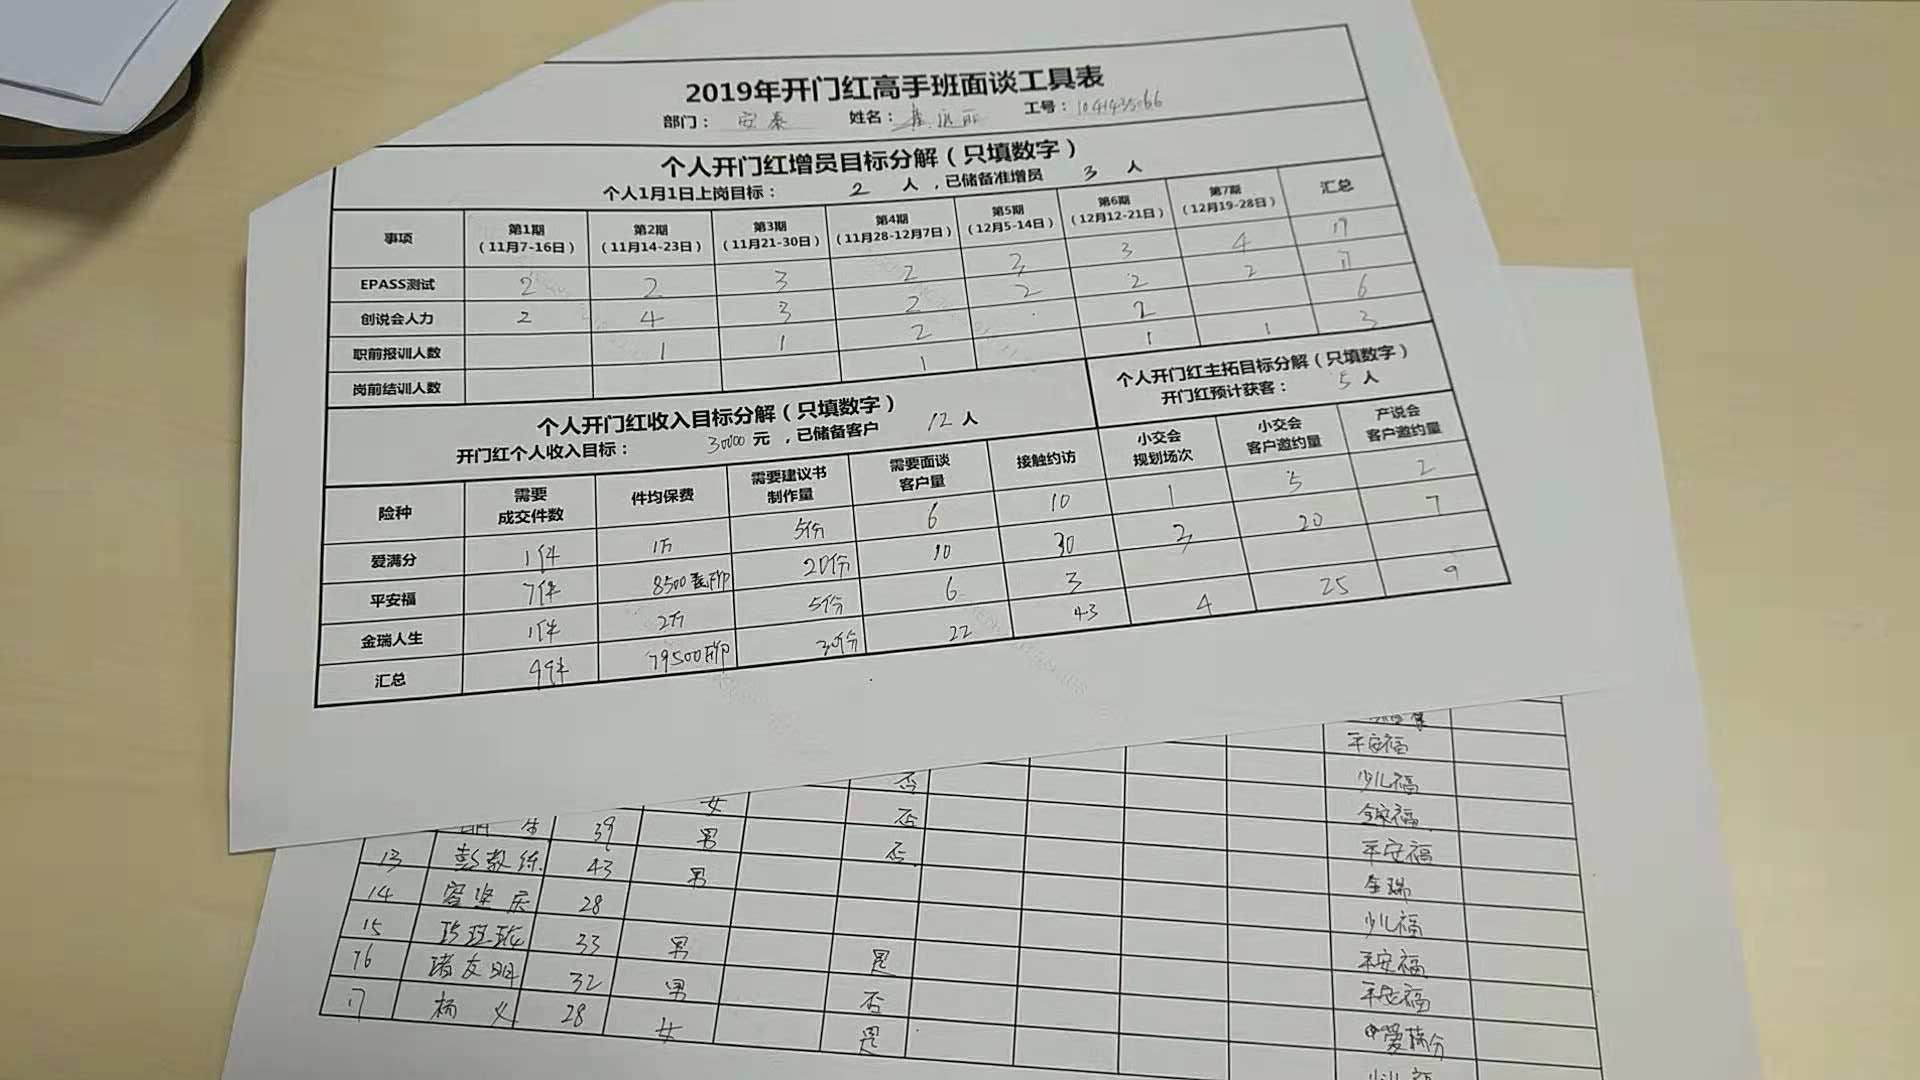 2019年开门红高手班面谈工具表
部门： 安泰 姓名： 工号：
个人开门红增员目标分解（只填数字）
个人1月1日上岗目标： 2 人 ，已储备准增员 3 人
事项 第1期（11月7-16日） 第2期（11月14-23日） 第3期（11月21-30日） 第4期（11月28-12月7日） 第5期（12月5-14日） 第6期（12月12-21日） 第7期（12月19-28日） 汇总
EPASS测试 2 2 3 2 3 4
创说会人力 2 4 3 2 2 2 2
职前报训人数 1 1 2 2 6
岗前结训人数 1 1 1 3
个人开门红收入目标分解（只填数字）
开门红个人收入目标： 30000 元 ，已储备客户 12 人
个人开门红主拓目标分解（只填数字）
开门红预计获客： 5 人
险种 需要成交件数 件均保费 需要建议书制作量 需要面谈客户量 接触约访 小交会规划场次 小交会客户邀约量 产说会客户邀约量
爱满分 1件 1万 5份 6 10 1 5 2
平安福 7件 8500 20份 10 30 3 20 7
金瑞人生 1件 2万 5份 6 3
汇总 9件 79500 30份 22 43 4 25 9
平安福
否 少儿福
女 否
39 男 否 平安福
13 彭教练 43 男 金瑞
14 28 少儿福
15 33 男 是 平安福
16 友明 32 男 否 平安福
17 杨义 28 女 是 爱满分